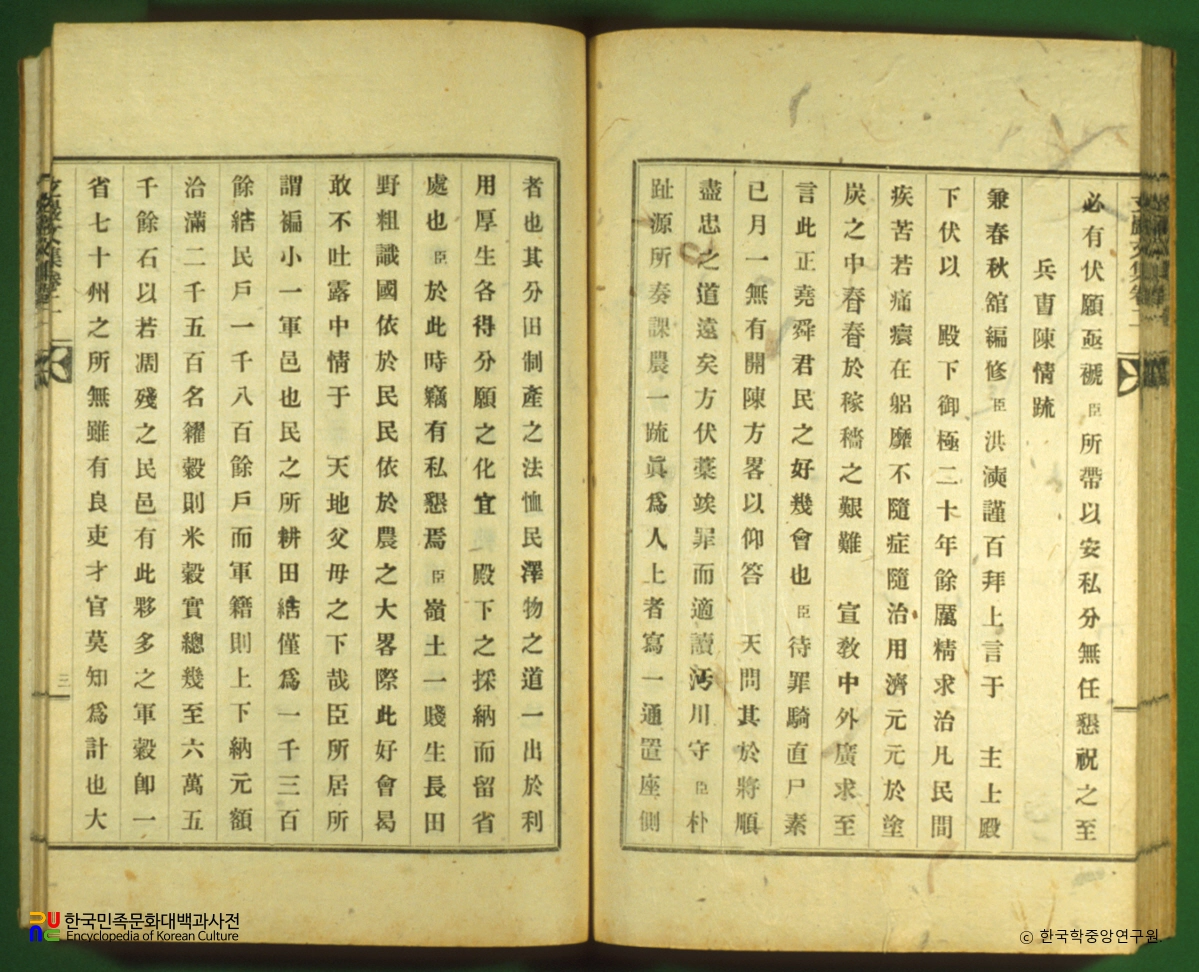 必有伏願亟褫臣所帶以安私分無任懇祝之至
兵曺陳情疏
兼春秋舘編修臣洪㴉謹百拜上言于 主上殿
下伏以 殿下御極二十年餘厲精求治凡民間
疾苦若痛癏在躬靡不隨症隨治用濟元元於塗
炭之中眷眷於稼穡之艱難 宣敎中外廣求至
言此正堯舜君民之好幾會也臣待罪騎直尸素
已月一無有開陳方畧以仰答 天問其於將順
盡忠之道遠矣方伏藁竢罪而適讀沔川守臣朴
趾源所奏課農一疏眞爲人上者寫一通置座側
者也其分田制產之法恤民澤物之道一出於利
用厚生各得分願之化宜 殿下之採納而留省
處也臣於此時竊有私懇焉臣嶺土一賤生長田
野粗識國依於民民依於農之大畧際此好會曷
敢不吐露中情于 天地父毋之下哉臣所居所
謂褊小一軍邑也民之所耕田結僅爲一千三百
餘結民戶一千八百餘戶而軍籍則上下納元額
洽滿二千五百名糴穀則米穀實總幾至六萬五
千餘石以若凋殘之民邑有此夥多之軍穀卽一
省七十州之所無雖有良吏才官莫知爲計也大
三
한국민족문화대백과사전
Encyclopedia of Korean Culture
ⓒ 한국학중앙연구원